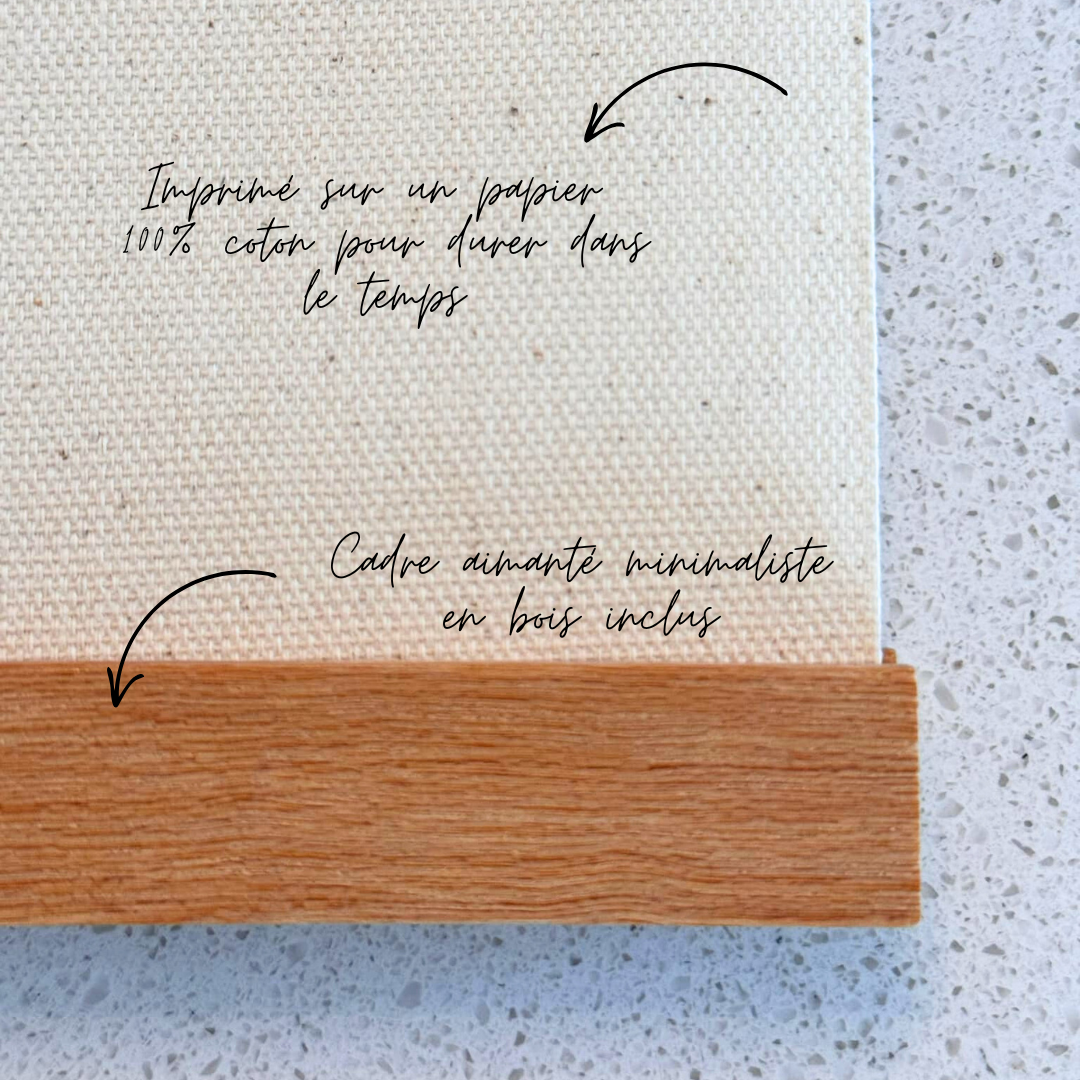 Imprimé sur un papier
100% coton pour durer dans
le temps
Cadre aimanté minimaliste
en bois inclus